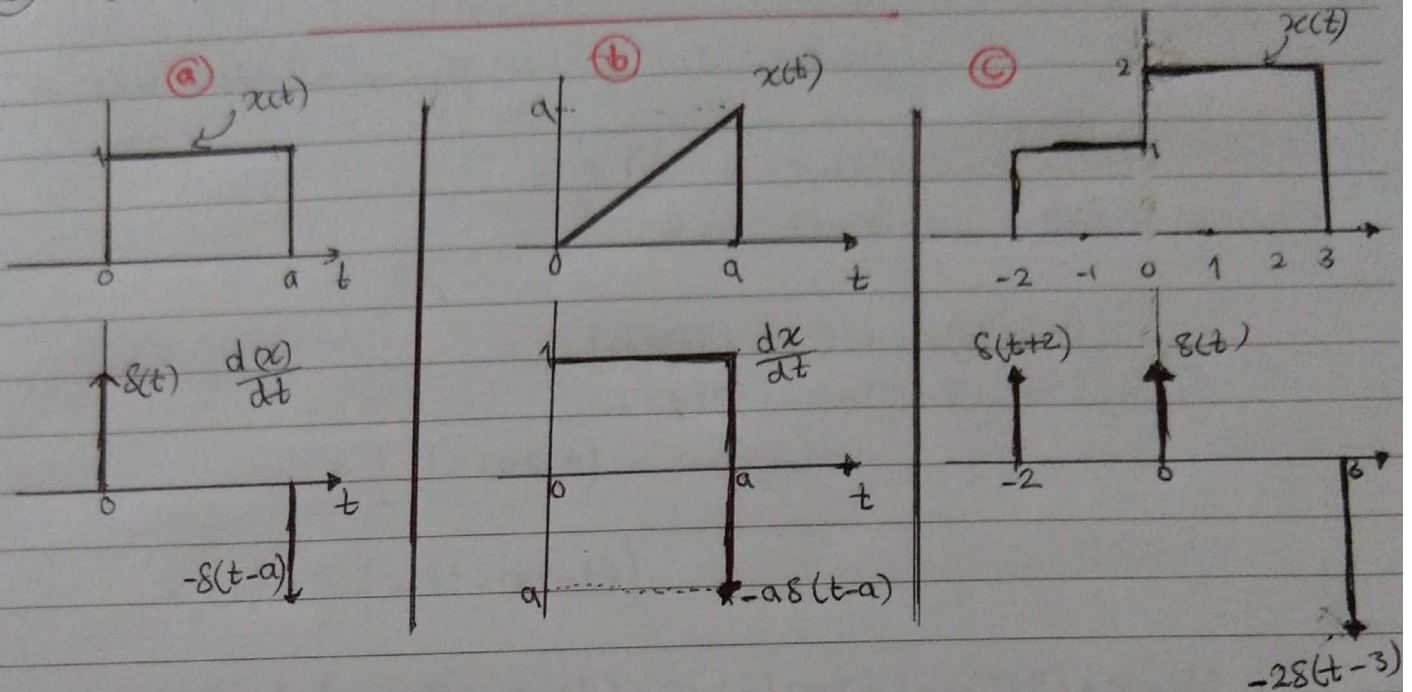 a
x(t)
1
0
a
t
δ(t)
d(x)
dt
0
t
-δ(t-a)
b
x(t)
a
0
a
t
dx
dt
1
0
a
t
a
-aδ(t-a)
c
x(t)
2
1
-2 -1 0 1 2 3
δ(t+2)
δ(t)
-2
0
3
-2δ(t-3)